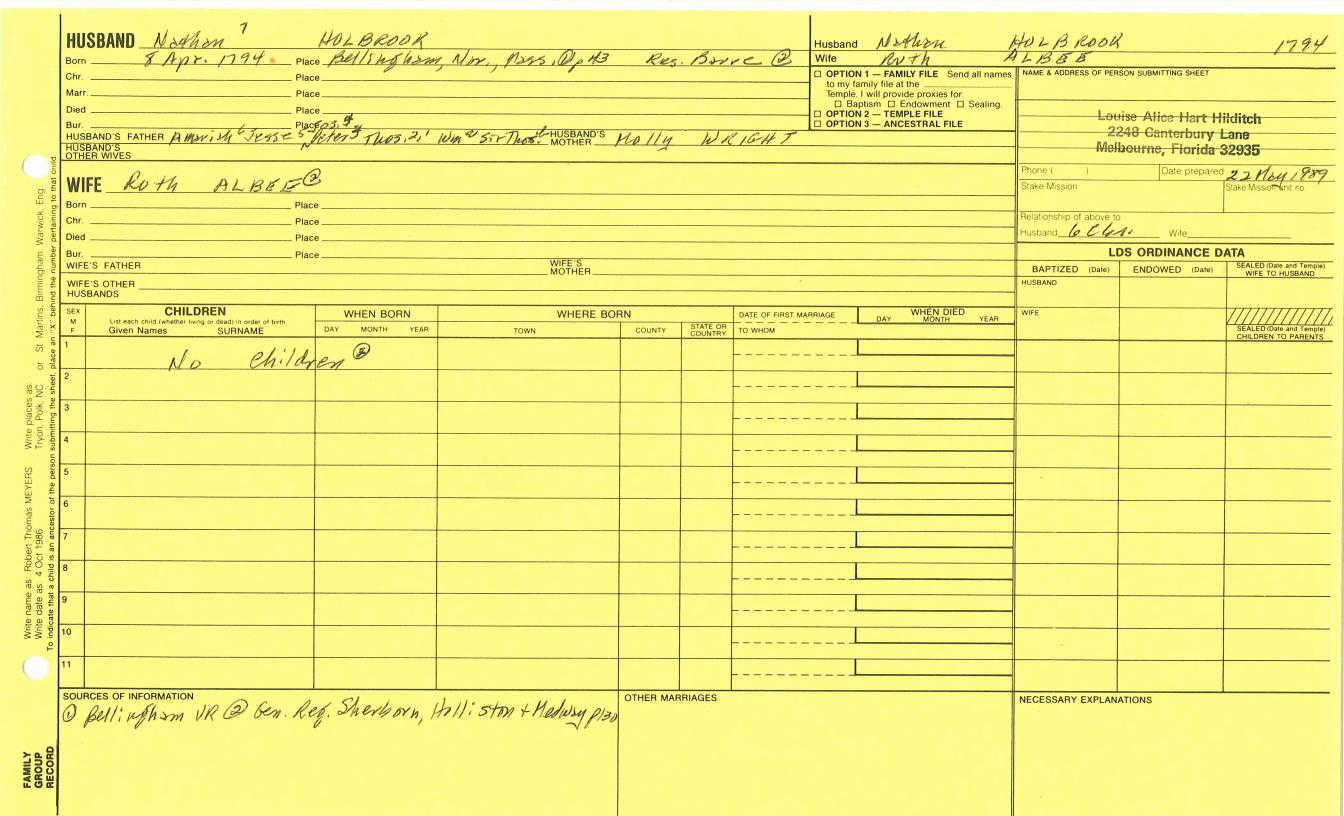 HUSBAND Nathan 7 HOLBROOK
Born 8 Apr. 1794. Place Bellingham, Nor., Mass. ① p 43 Res. Barre ②
Chr. Place
Marr. Place
Died Place
Bur. Place
HUSBAND'S FATHER Amariah 6 Jesse 5 Peter 3 Thos. 2, 1 Wm Sir Thos. HUSBAND'S MOTHER Molly WRIGHT
HUSBAND'S OTHER WIVES
Husband Nathan HOLBROOK 1794
Wife Ruth ALBEE
☐ OPTION 1 — FAMILY FILE Send all names
to my family file at the
Temple. I will provide proxies for
☐ Baptism ☐ Endowment ☐ Sealing.
☐ OPTION 2 — TEMPLE FILE
☐ OPTION 3 — ANCESTRAL FILE
NAME & ADDRESS OF PERSON SUBMITTING SHEET
Louise Alice Hart Hilditch
2248 Canterbury Lane
Melbourne, Florida 32935
Phone ( ) Date prepared 22 May 1989
Stake Mission Stake/Mission unit no.
Relationship of above to
Husband 6C6r. Wife
WIFE Ruth ALBEE ②
Born Place
Chr. Place
Died Place
Bur. Place
WIFE'S FATHER WIFE'S MOTHER
WIFE'S OTHER HUSBANDS
LDS ORDINANCE DATA
BAPTIZED (Date) ENDOWED (Date) SEALED (Date and Temple) WIFE TO HUSBAND
HUSBAND
WIFE
SEALED (Date and Temple) CHILDREN TO PARENTS
SEX M F
CHILDREN
List each child (whether living or dead) in order of birth
Given Names SURNAME
WHEN BORN
DAY MONTH YEAR
WHERE BORN
TOWN COUNTY STATE OR COUNTRY
DATE OF FIRST MARRIAGE
TO WHOM
WHEN DIED
DAY MONTH YEAR
1 No Children ②
2
3
4
5
6
7
8
9
10
11
SOURCES OF INFORMATION
① Bellingham VR ② Gen. Reg. Sherborn, Holliston + Medway p130
OTHER MARRIAGES
NECESSARY EXPLANATIONS
Write name as Robert Thomas MEYERS Write places as Tryon, Polk, NC or St Martins, Birmingham, Warwick, Eng
Write date as 4 Oct 1986
To indicate that a child is an ancestor of the person submitting the sheet, place an "X" behind the number pertaining to that child.
FAMILY
GROUP
RECORD